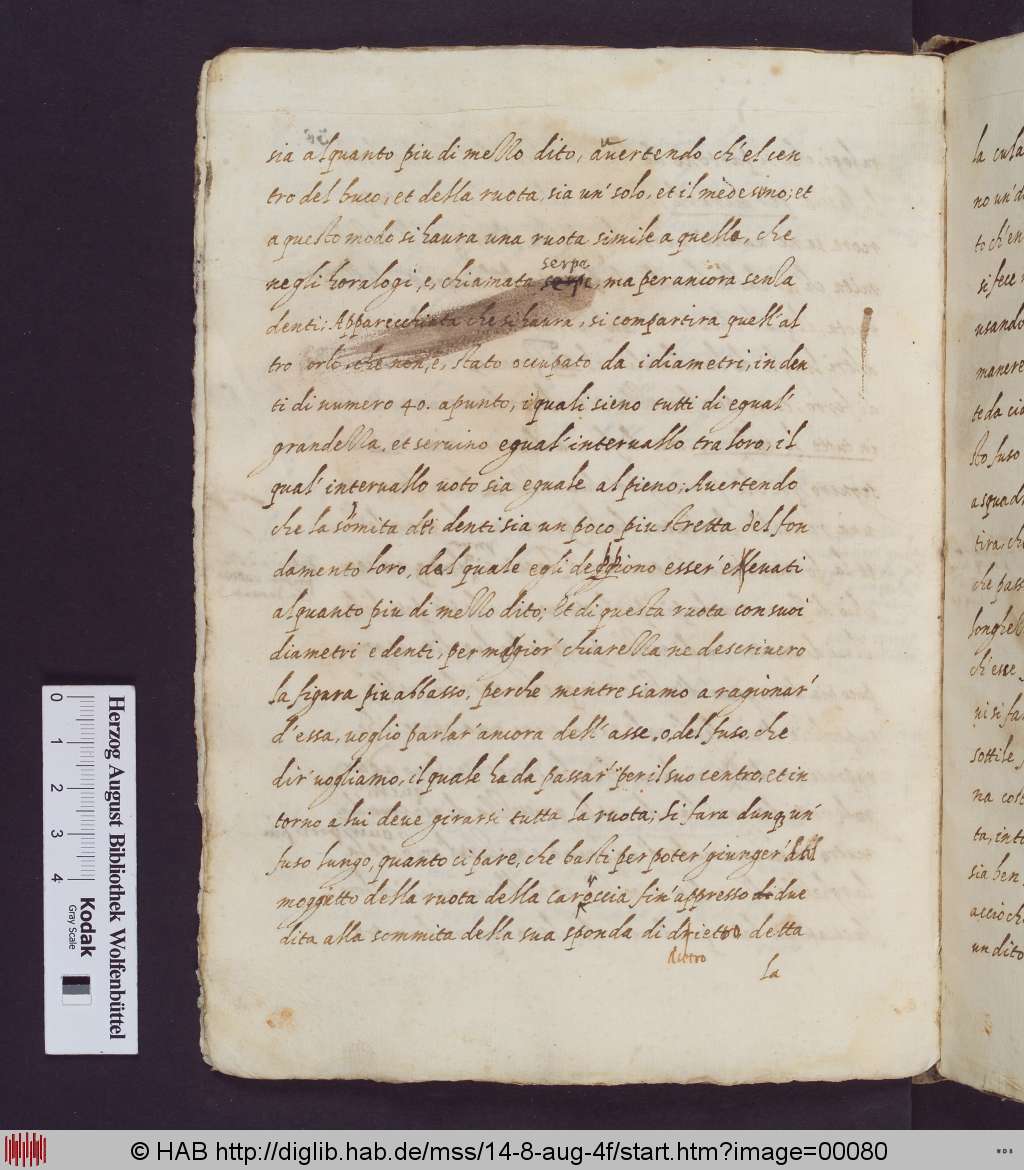 sia alquanto piu di mezzo dito, auertendo ch'el cen
tro del buco, et della ruota, sia un' solo, et il medesimo; et
a questo modo si haura una ruota simile a quella, che
serpa
negli horalogi, e, chiamata serpe, ma per ancora senza
denti; Apparecchiata che si haura, si compartira quell' al
tro orlo, che non, e, stato occupato da i diametri, in den
ti di numero 40. apunto, i quali sieno tutti di egual'
grandezza, et seruino egual' interuallo tra loro, il
qual' interuallo uoto sia eguale al pieno; Auertendo
che la somita di denti sia un poco piu stretta del fon
damento loro, dal quale egli debbiono esser' elleuati
alquanto piu di mezzo dito; Et di questa ruota con suoi
diametri e denti, per magior' chiarezza ne descriuero
la figura piu abbasso, perche mentre siamo a ragionar'
d' essa, uoglio parlar' ancora dell' asse, o, del fuso, che
dir' uogliamo, il quale ha da passar' per il suo centro, et in
torno a lui deue girarsi tutta la ruota; Si fara dunq; un'
fuso lungo, quanto ci pare, che basti per poter' giunger' dal
mozzetto della ruota della caroccia fin' appresso di due
dita alla sommita della sua sponda di drietto detta
dietro
la
la cula
no un'd
to ch'en
si fece
usando
manere
te da cia
sto fuso
a squad
tira, che
che pass
longhezz
ch'esce
ui si fa
sottile
na cost
ta, into
sia ben
accio ch
un dito
Herzog August Bibliothek Wolfenbüttel
0 1 2 3 4
Kodak
Gray Scale
© HAB http://diglib.hab.de/mss/14-8-aug-4f/start.htm?image=00080